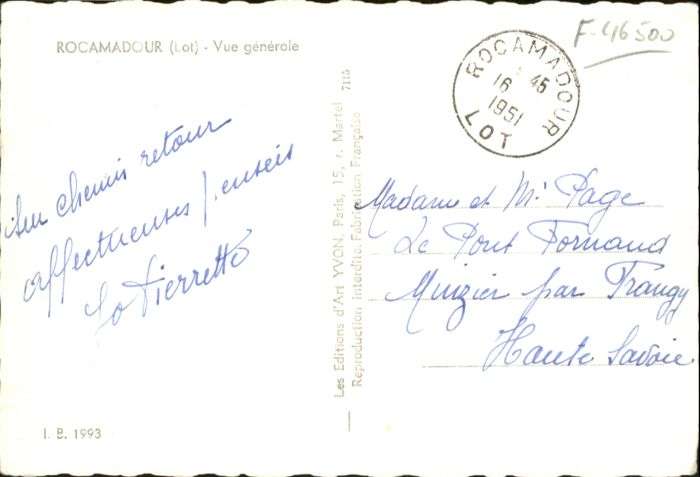 ROCAMADOUR (Lot) - Vue générale
Sur chemin retour
affectueuses pensées
Pierrette
I. B. 1993
Les Editions d'Art YVON, Paris, 15, r. Martel
Reproduction Interdite. Fabrication Française
7115
F-46500
ROCAMADOUR
45
16
1951
LOT
Madame et Mr Page
Le Pont Fornand
Minzier par Frangy
Haute Savoie